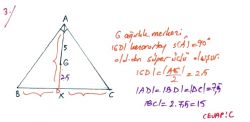 3.
A
5
G
2.5
B
K
C
G ağırlık merkezi,
|GD| kenarortay s(A) = 90°
olduğundan süper üçlü oluşur.
|GD| = |AG|/2 = 2.5
|AD| = |BD| = |DC| = 7,5
|BC| = 2.7,5 = 15
CEVAP: C